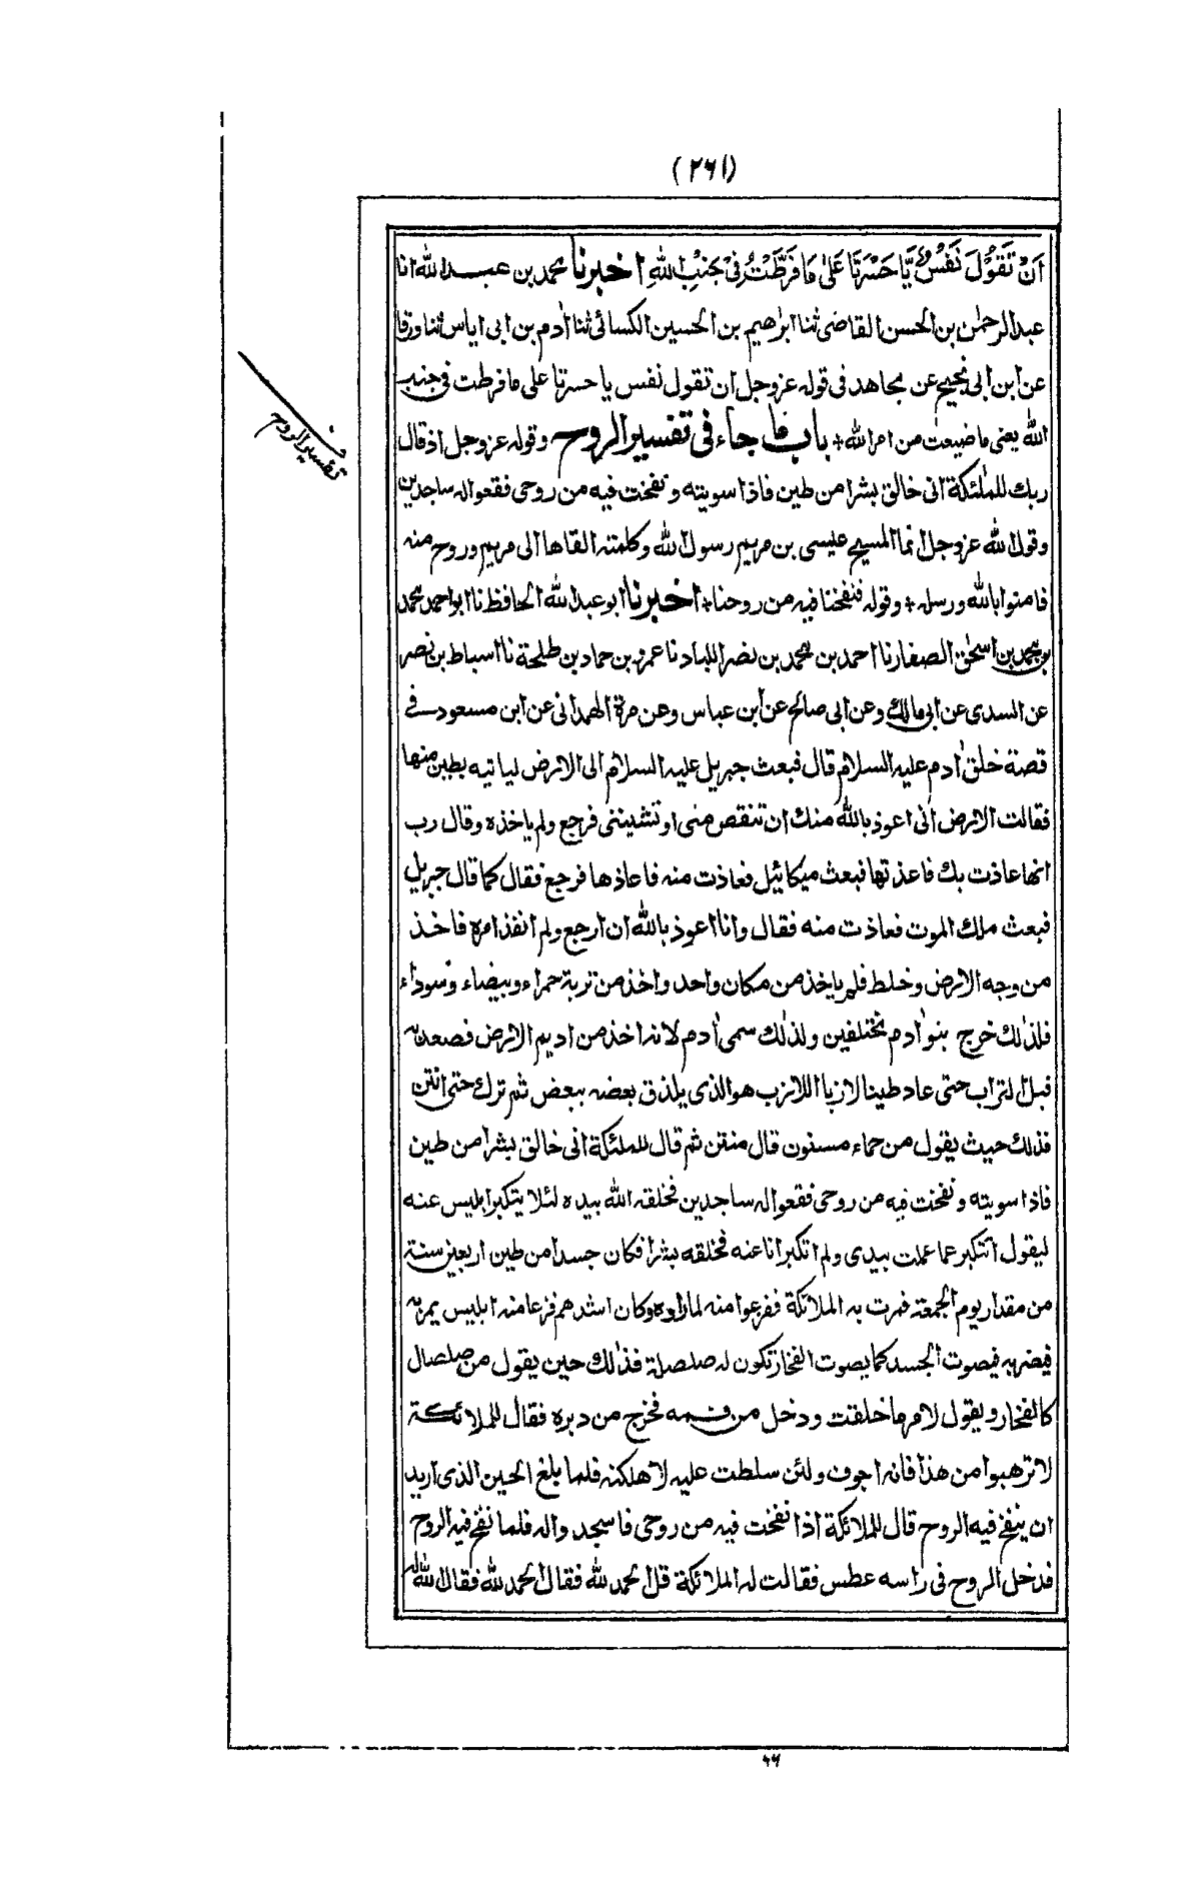 (٢٦١)
اَنْ تَقُوْلَ نَفْسٌ يَّا حَسْرَتَا عَلٰى مَا فَرَّطْتُ فِىْ جَنْبِ اللهِ اخبرنا محمد بن عبد الله انا
عبد الرحمٰن بن الحسن القاضى ثنا ابرٰهيم بن الحسين الكسائى ثنا اٰدم بن ابى اياس ثنا ورقا
عن ابن ابى نجيح عن مجاهد فى قوله عزوجل ان تقول نفس يا حسرتا على ما فرطت فى جنب
الله يعنى ما ضيعت من امر الله + باب ما جاء فى تفسير الروح وقوله عزوجل اذ قال
ربك للملٰئكة انى خالق بشرا من طين فاذا سويته ونفخت فيه من روحى فقعوا له ساجدين
وقول الله عزوجل انما المسيح عيسى بن مريم رسول الله وكلمته القاها الى مريم وروح منه
فامنوا بالله ورسله + وقوله فنفخنا فيه من روحنا + اخبرنا ابو عبد الله الحافظ نا ابو احمد محمد
بن محمد بن اسحٰق الصفار نا احمد بن محمد بن نصر اللباد نا عمرو بن حماد بن طلحة نا اسباط بن نصر
عن السدى عن ابى مالك وعن ابى صالح عن ابن عباس وعن مرة الهمدانى عن ابن مسعود فى
قصة خلق اٰدم عليه السلام قال فبعث جبريل عليه السلام الى الارض لياتيه بطين منها
فقالت الارض انى اعوذ بالله منك ان تنقص منى او تشيننى فرجع ولم ياخذه وقال رب
انها عاذت بك فاعذتها فبعث ميكائيل فعاذت منه فاعاذها فرجع فقال كما قال جبريل
فبعث ملك الموت فعاذت منه فقال وانا اعوذ بالله ان ارجع ولم انفذ امره فاخذ
من وجه الارض وخلط فلم ياخذ من مكان واحد واخذ من تربة حمراء وبيضاء وسوداء
فلذٰلك خرج بنو اٰدم مختلفين ولذٰلك سمى اٰدم لانه اخذ من اديم الارض فصعد به
فبل التراب حتى عاد طينا لازبا اللازب هو الذى يلذق بعضه ببعض ثم ترك حتى انتن
فذلك حيث يقول من حماء مسنون قال منتن ثم قال للملٰئكة انى خالق بشرا من طين
فاذا سويته ونفخت فيه من روحى فقعوا له ساجدين فخلقه الله بيده لئلا يتكبر ابليس عنه
ليقول اتتكبر عما عملت بيدى ولم اتكبر انا عنه فخلقه بشرا فكان جسدا من طين اربعين سنة
من مقدار يوم الجمعة فمرت به الملائكة ففزعوا منه لما راوه وكان اشدهم فزعا منه ابليس يمر به
فيضربه فيصوت الجسد كما يصوت الفخار تكون له صلصلة فذٰلك حين يقول من صلصال
كالفخار ويقول لامر ما خلقت ودخل من فمه فخرج من دبره فقال للملائكة
لا ترهبوا من هذا فانه اجوف ولئن سلطت عليه لاهلكنه فلما بلغ الحين الذى اريد
ان ينفخ فيه الروح قال للملائكة اذا نفخت فيه من روحى فاسجدوا له فلما نفخ فيه الروح
فدخل الروح فى راسه عطس فقالت له الملائكة قل الحمد لله فقال الحمد لله فقال الله له
تفسير الروح
٦٦